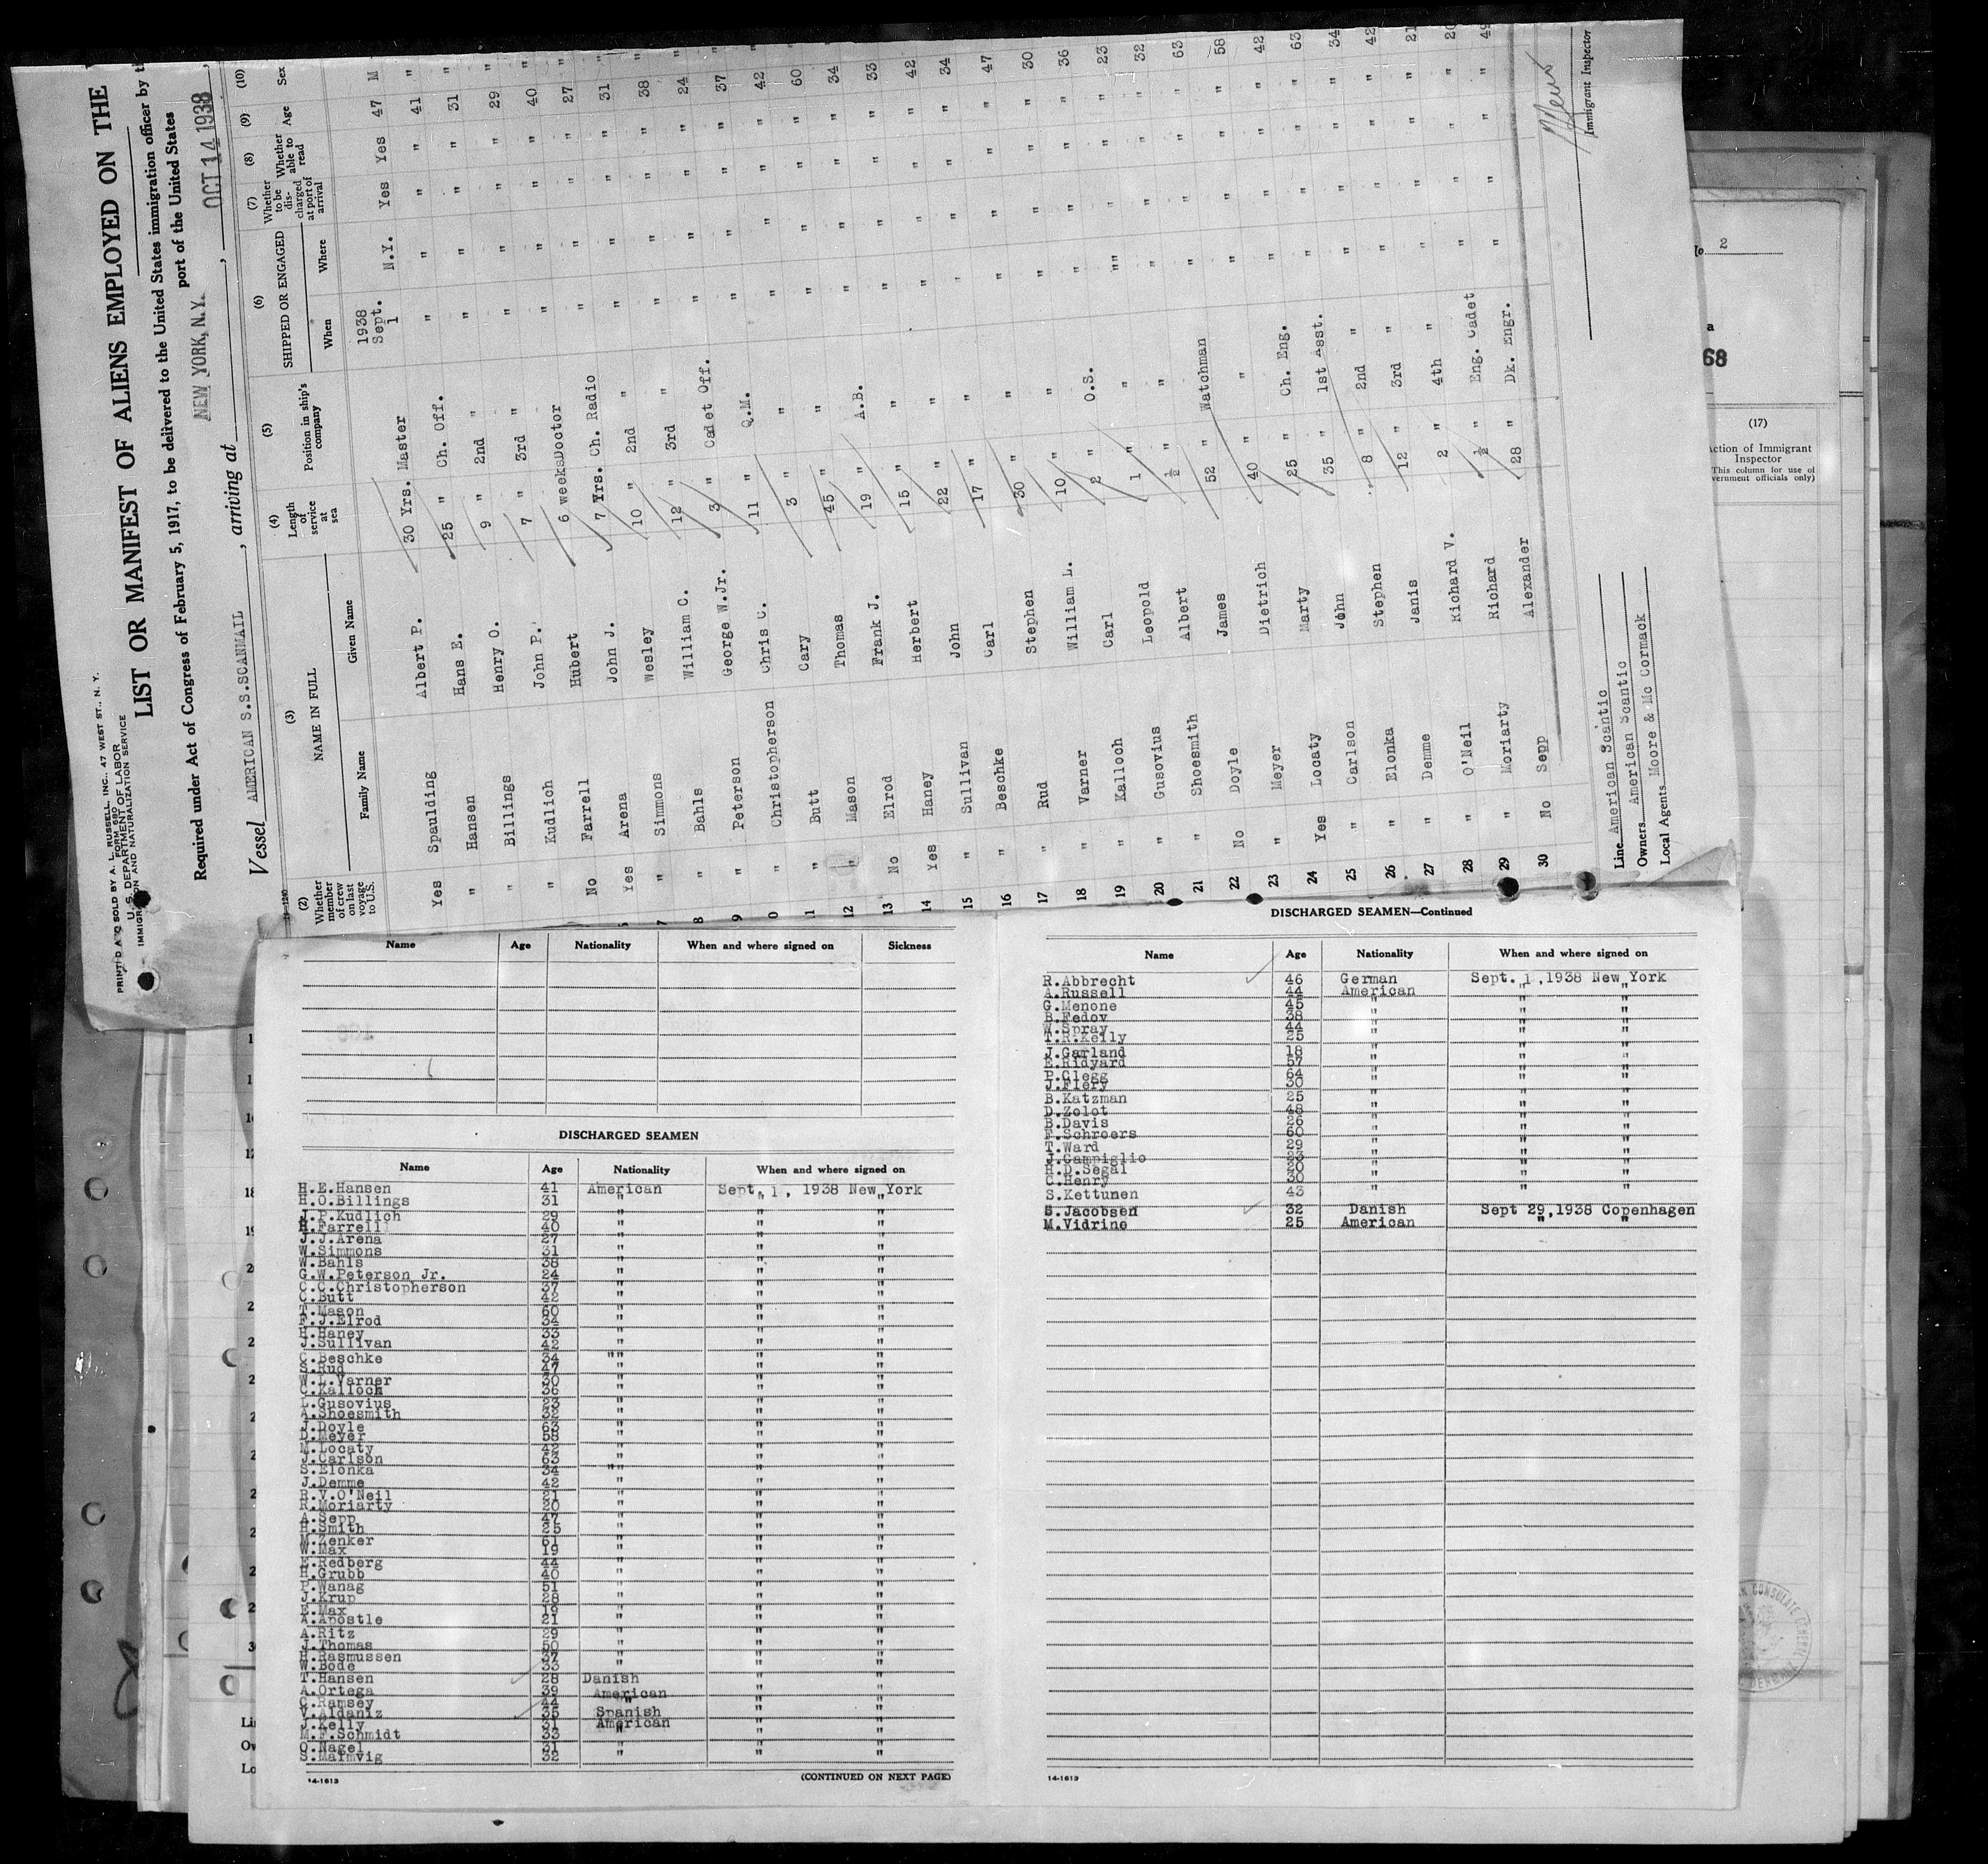 PRINTED AND SOLD BY A. L. RUSSELL, INC., 47 WEST ST., N. Y.
FORM 680
U. S. DEPARTMENT OF LABOR
IMMIGRATION AND NATURALIZATION SERVICE
LIST OR MANIFEST OF ALIENS EMPLOYED ON THE
Required under Act of Congress of February 5, 1917, to be delivered to the United States immigration officer by
port of the United States
Vessel AMERICAN S.S.SCANMAIL, arriving at NEW YORK, N.Y., OCT 14 1938,
(2) Whether member of crew on last voyage to U.S.
(3) NAME IN FULL Family Name Given Name
(4) Length of service at sea
(5) Position in ship's company
(6) SHIPPED OR ENGAGED When Where
(7) Whether to be discharged at port of arrival
(8) Whether able to read
(9) Age
(10) Sex
Yes Spaulding Albert P. 30 Yrs. Master 1938 Sept. 1 N.Y. Yes Yes 47 M
" Hansen Hans E. 25 " Ch. Off. " " " " 41 "
" Billings Henry O. 9 " 2nd " " " " " 31 "
" Kudlich John P. 7 " 3rd " " " " " 29 "
No Farrell Hubert 6 weeks Doctor " " " " 40 "
Yes Arena John J. 7 Yrs. Ch. Radio " " " " 27 "
7 " Simmons Wesley 10 " 2nd " " " " " 31 "
8 " Bahls William C. 12 " 3rd " " " " " 38 "
9 " Peterson George W.Jr. 3 " Cadet Off. " " " " 24 "
0 " Christopherson Chris C. 11 " Q.M. " " " " 37 "
11 " Butt Cary 3 " " " " " " 42 "
12 " Mason Thomas 45 " " " " " " 60 "
13 No Elrod Frank J. 19 " A.B. " " " " 34 "
14 Yes Haney Herbert 15 " " " " " " 33 "
15 " Sullivan John 22 " " " " " " 42 "
16 " Beschke Carl 17 " " " " " " 34 "
17 " Rud Stephen 30 " " " " " " 47 "
18 " Varner William L. 10 " " " " " " 30 "
19 " Kalloch Carl 2 " O.S. " " " " 36 "
20 " Gusovius Leopold 1 " " " " " " 23 "
21 " Shoesmith Albert ½ " " " " " " 32 "
22 No Doyle James 52 " Watchman " " " " 63 "
23 " Meyer Dietrich 40 " " " " " " 58 "
24 Yes Locaty Marty 25 " Ch. Eng. " " " " 42 "
25 " Carlson John 35 " 1st Asst. " " " " 63 "
26 " Elonka Stephen 8 " 2nd " " " " " 34 "
27 " Demme Janis 12 " 3rd " " " " " 42 "
28 " O'Neil Richard V. 2 " 4th " " " " " 21 "
29 " Moriarty Richard ½ " Eng. Cadet " " " " 20 "
30 No Sepp Alexander 28 " Dk. Engr. " " " "
Line American Scantic
Owners American Scantic
Local Agents Moore & Mc Cormack
Immigrant Inspector
No. 2
a
68
(17)
Action of Immigrant Inspector
This column for use of
Government officials only)
Name Age Nationality When and where signed on Sickness
DISCHARGED SEAMEN
Name Age Nationality When and where signed on
H.E.Hansen 41 American Sept. 1, 1938 New York
H.O.Billings 31 " " "
J.P.Kudlich 29 " " "
H.Farrell 40 " " "
J.J.Arena 27 " " "
W.Simmons 31 " " "
W.Bahls 38 " " "
G.W.Peterson Jr. 24 " " "
C.C.Christopherson 37 " " "
C.Butt 42 " " "
T.Mason 60 " " "
F.J.Elrod 34 " " "
H.Haney 33 " " "
J.Sullivan 42 " " "
C.Beschke 34 "" " "
S.Rud 47 " " "
W.L.Varner 30 " " "
C.Kalloch 36 " " "
L.Gusovius 23 " " "
A.Shoesmith 32 " " "
J.Doyle 63 " " "
D.Meyer 58 " " "
M.Locaty 42 " " "
J.Carlson 63 " " "
S.Elonka 34 "" " "
J.Demme 42 " " "
R.V.O'Neil 21 " " "
R.Moriarty 20 " " "
A.Sepp 47 " " "
H.Smith 25 " " "
M.Zenker 61 " " "
W.Max 19 " " "
E.Redberg 44 " " "
H.Grubb 40 " " "
P.Wanag 51 " " "
J.Krup 28 " " "
E.Max 19 " " "
A.Apostle 21 " " "
A.Ritz 29 " " "
J.Thomas 50 " " "
H.Rasmussen 37 " " "
W.Bode 33 " " "
T.Hansen 28 Danish " "
A.Ortega 39 American " "
C.Ramsey 44 " " "
V.Aldaniz 35 Spanish " "
J.Kelly 31 American " "
M.F.Schmidt 33 " " "
O.Nagel 31 " " "
S.Malmvig 32 " " "
14-1613 (CONTINUED ON NEXT PAGE)
DISCHARGED SEAMEN—Continued
Name Age Nationality When and where signed on
R.Abbrecht 46 German Sept. 1, 1938 New York
A.Russell 44 American " "
G.Menone 45 " " "
B.Fedov 38 " " "
W.Spray 44 " " "
T.R.Kelly 25 " " "
J.Garland 18 " " "
E.Ridyard 57 " " "
P.Clegg 64 " " "
J.Flery 30 " " "
B.Katzman 25 " " "
D.Zolot 48 " " "
B.Davis 26 " " "
F.Schroers 60 " " "
T.Ward 29 " " "
J.Campiglio 23 " " "
H.D.Segal 20 " " "
C.Henry 30 " " "
S.Kettunen 43 " " "
S.Jacobsen 32 Danish Sept 29,1938 Copenhagen
M.Vidrine 25 American " "
14-1613